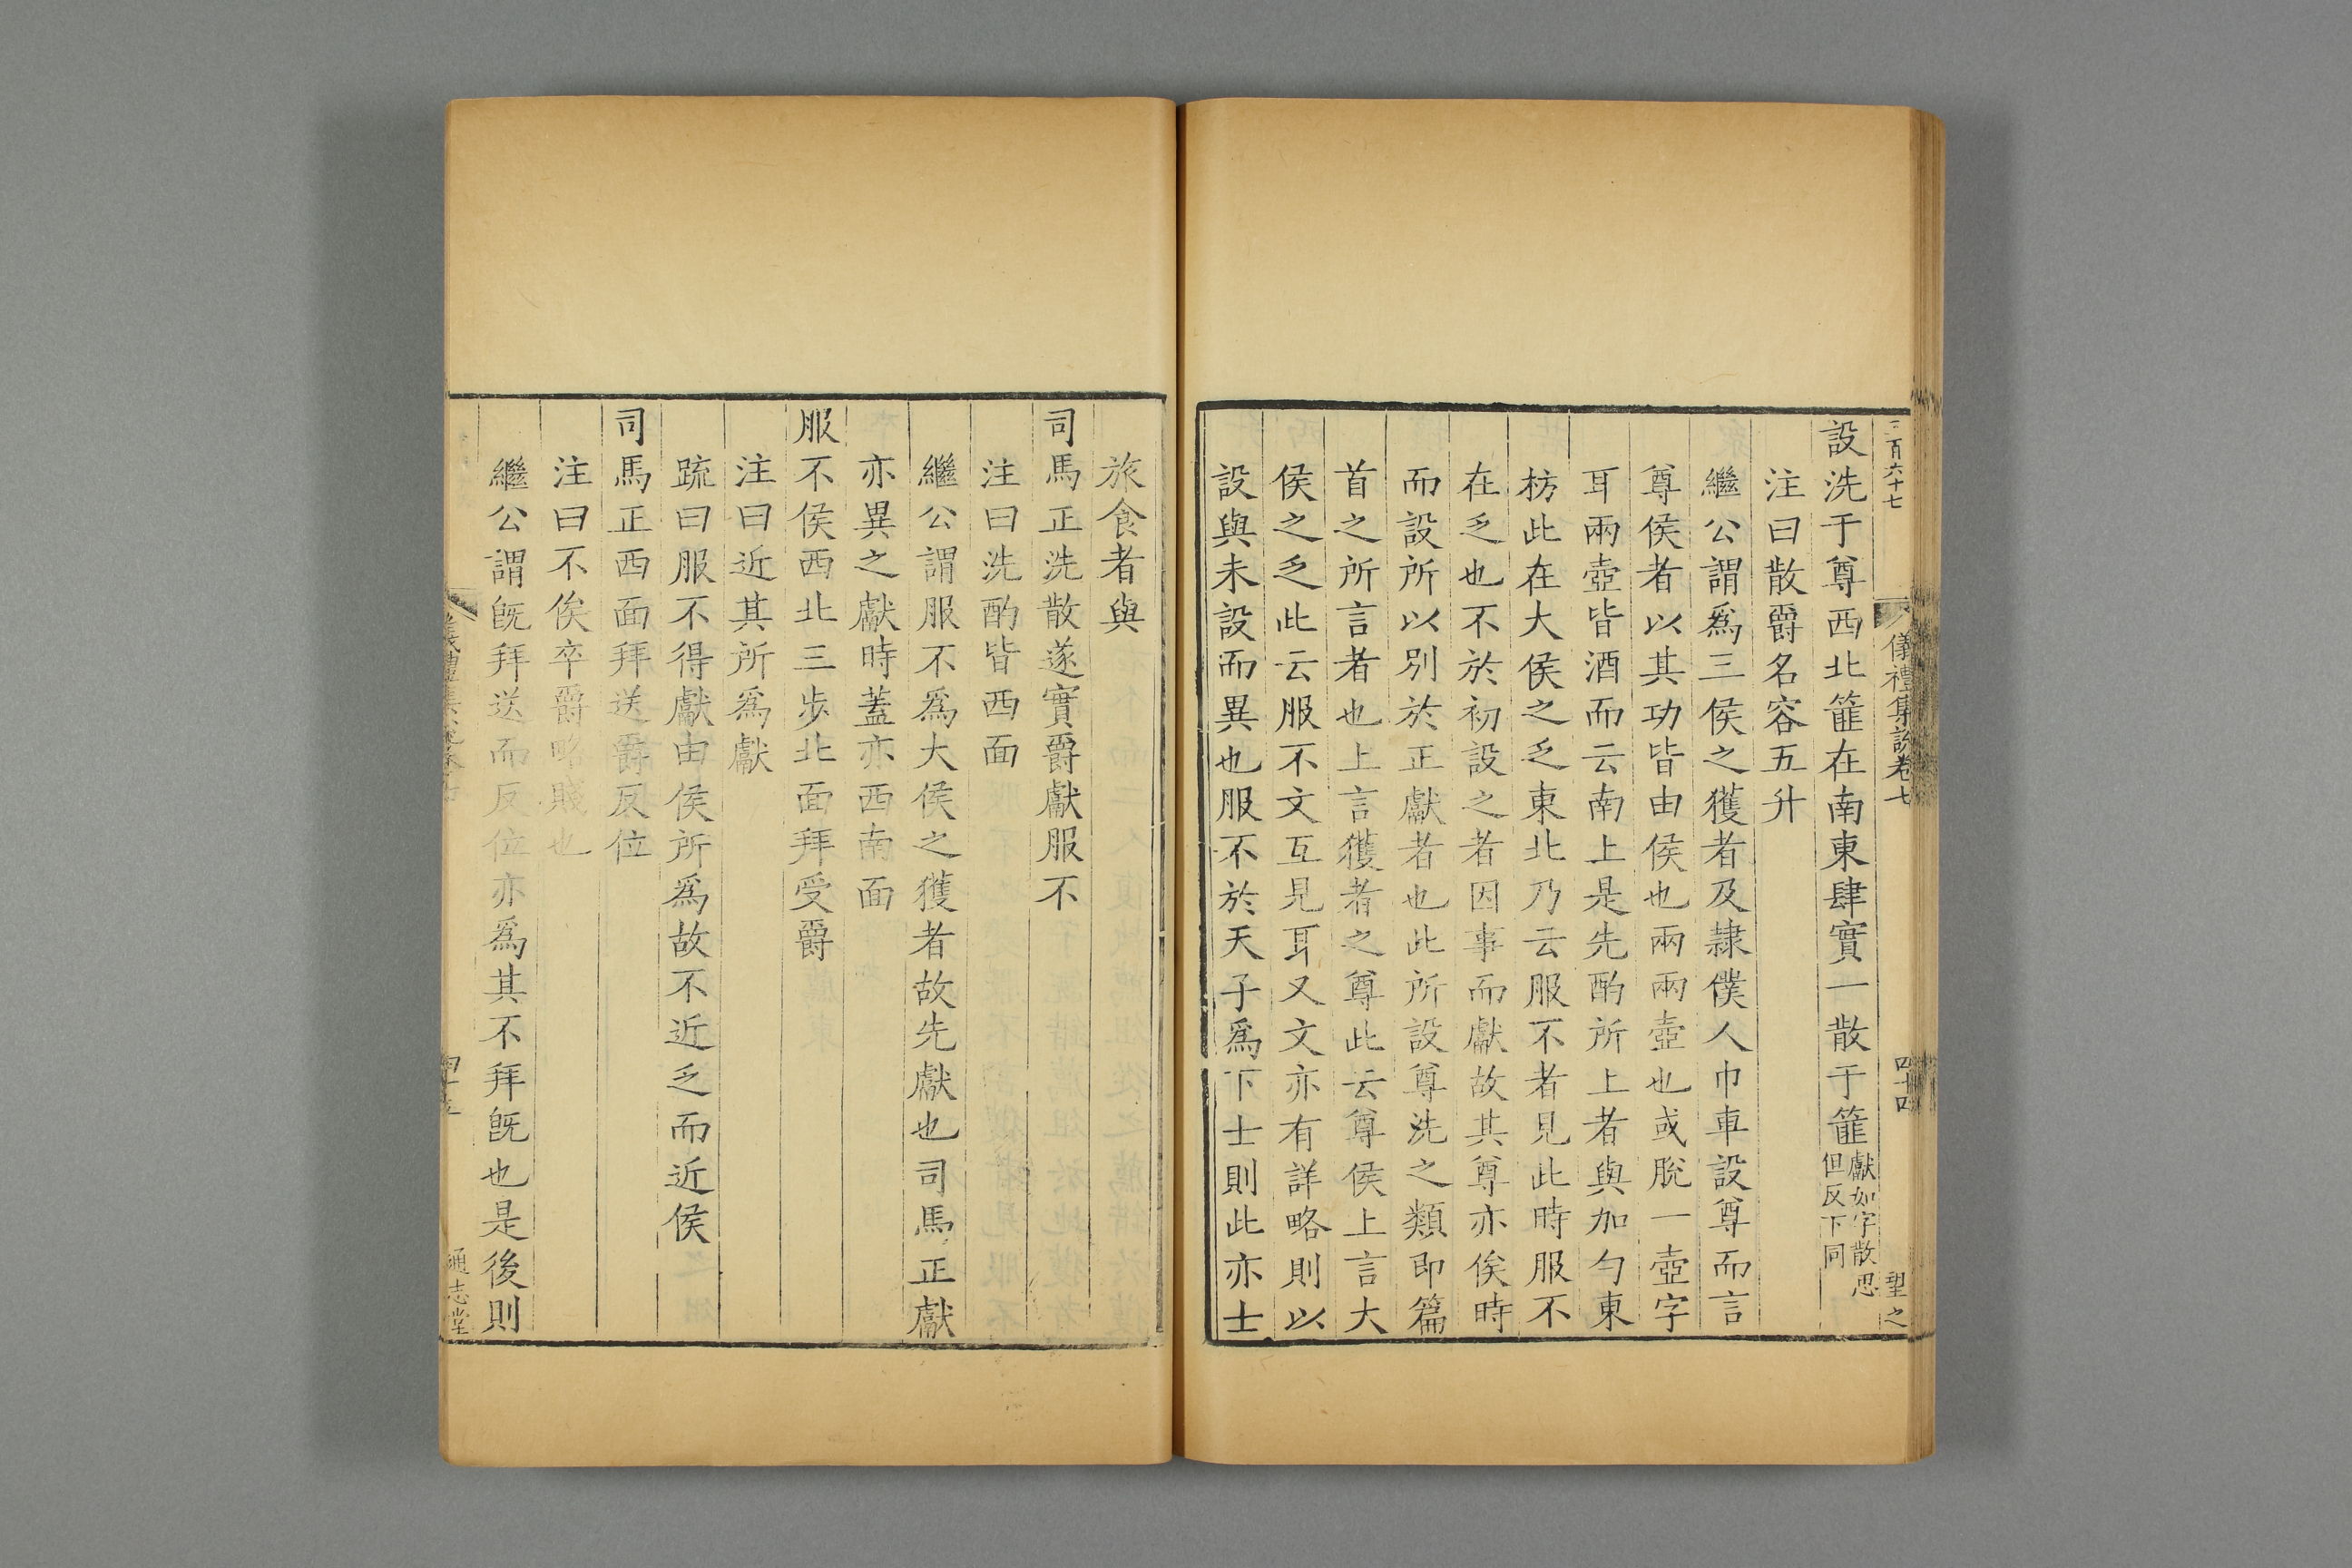 三百六十七
儀禮集說卷七
四十四
設洗于尊西北篚在南東肆實一散于篚獻如字散思但反下同
注曰散爵名容五升
繼公謂爲三侯之獲者及隷僕人巾車設尊而言
尊侯者以其功皆由侯也兩兩壺也或脫一壺字
耳兩壺皆酒而云南上是先酌所上者與加勺東
枋此在大侯之乏東北乃云服不者見此時服不
在乏也不於初設之者因事而獻故其尊亦俟時
而設所以別於正獻者也此所設尊洗之類即篇
首之所言者也上言獲者之尊此云尊侯上言大
侯之乏此云服不文互見耳又文亦有詳略則以
設與未設而異也服不於天子爲下士則此亦士
旅食者與
司馬正洗散遂實爵獻服不
注曰洗酌皆西面
繼公謂服不爲大侯之獲者故先獻也司馬正獻
亦異之獻時蓋亦西南面
服不侯西北三步北面拜受爵
注曰近其所爲獻
疏曰服不得獻由侯所爲故不近乏而近侯
司馬正西面拜送爵反位
注曰不俟卒爵略賤也
繼公謂旣拜送而反位亦爲其不拜旣也是後則
通志堂